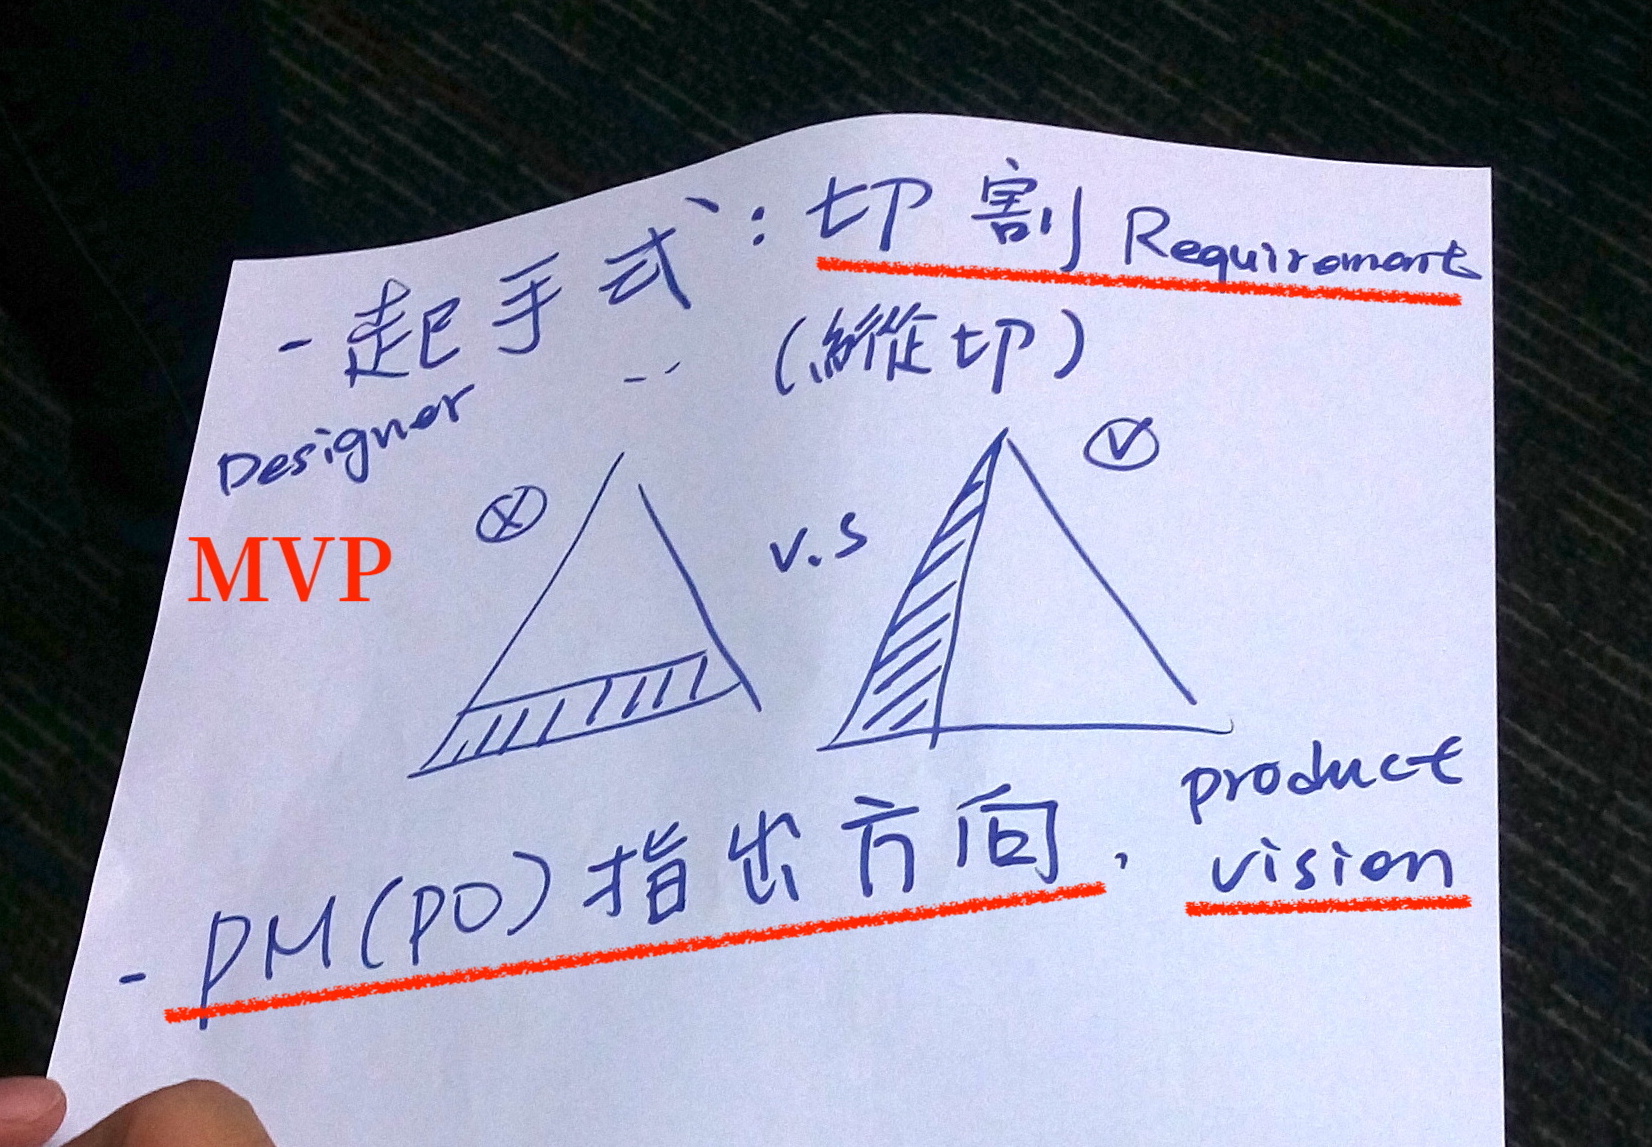 - 起手式：切割 Requirement
(縱切)
Designer
MVP
ⓧ
v.s
ⓥ
- PM(PO)指出方向, product
vision